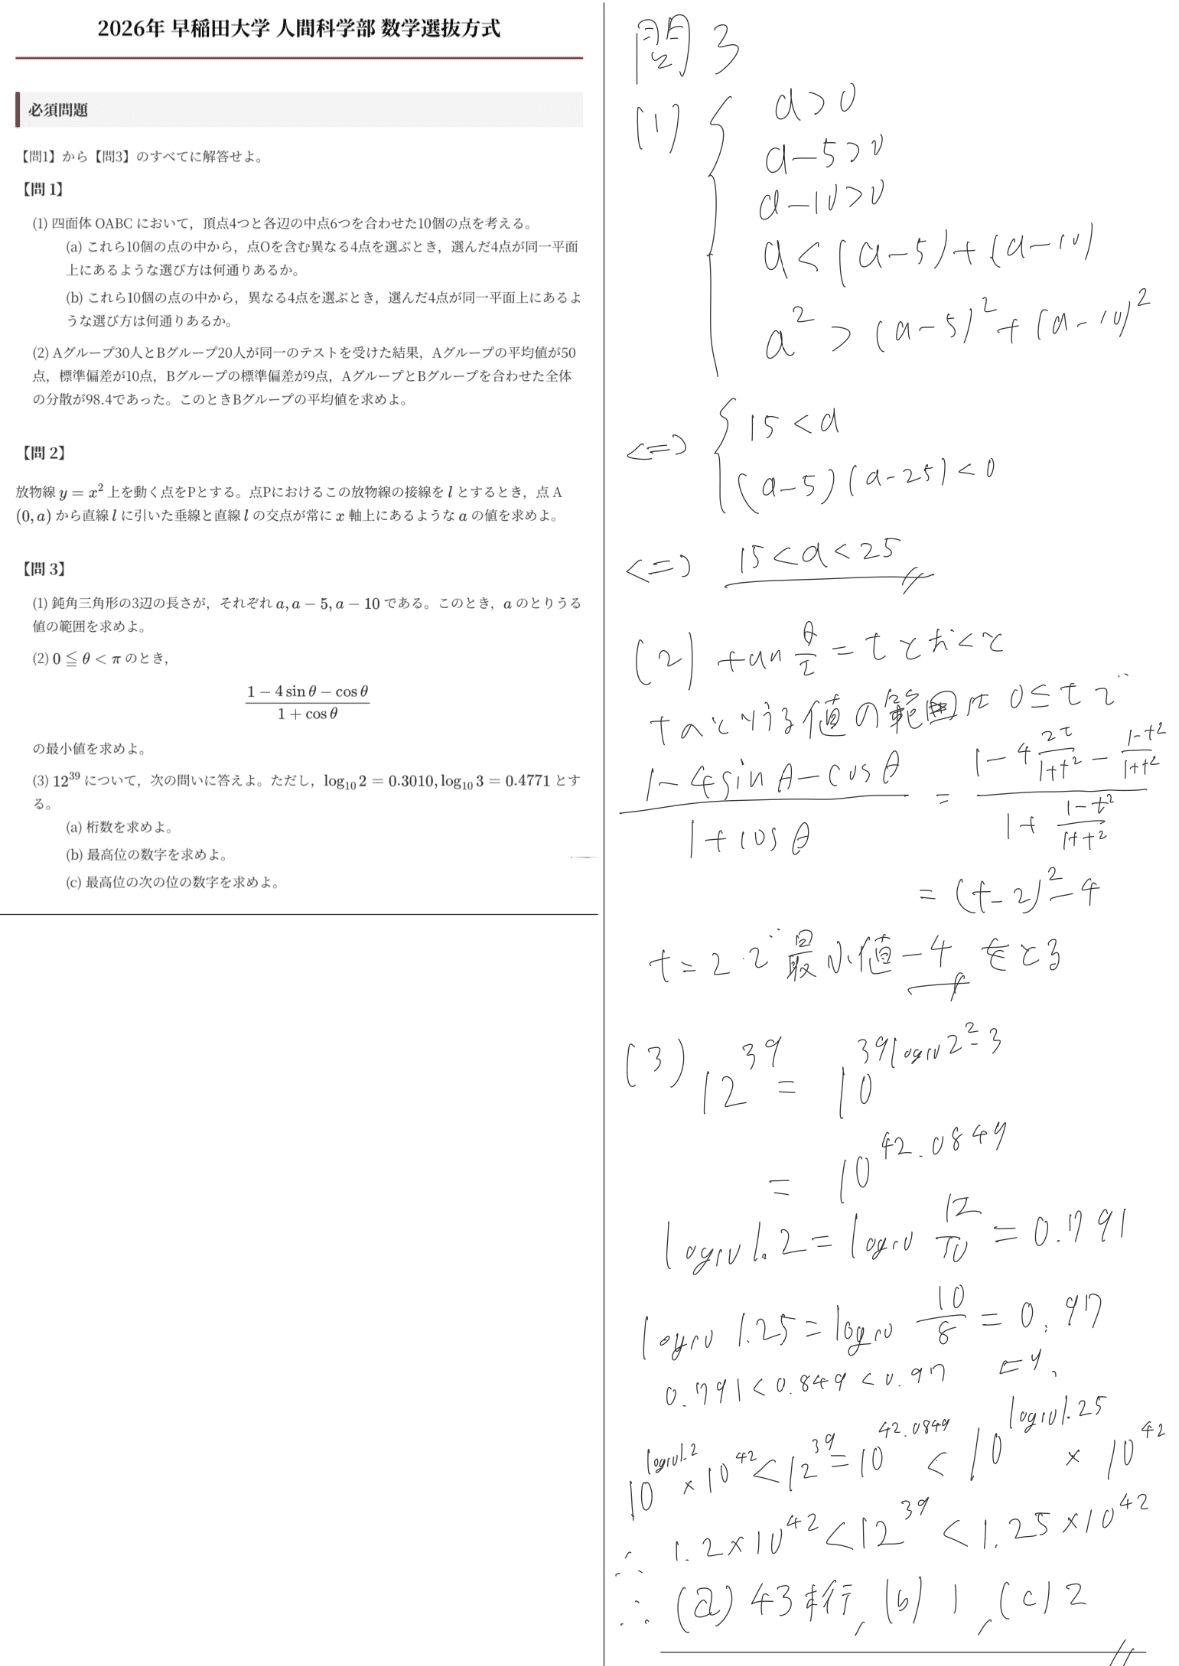 2026年 早稲田大学 人間科学部 数学選抜方式
必須問題
【問1】から【問3】のすべてに解答せよ。
【問 1】
(1) 四面体 OABC において，頂点4つと各辺の中点6つを合わせた10個の点を考える。
(a) これら10個の点の中から，点Oを含む異なる4点を選ぶとき，選んだ4点が同一平面
上にあるような選び方は何通りあるか。
(b) これら10個の点の中から，異なる4点を選ぶとき，選んだ4点が同一平面上にあるよ
うな選び方は何通りあるか。
(2) Aグループ30人とBグループ20人が同一のテストを受けた結果，Aグループの平均値が50
点，標準偏差が10点，Bグループの標準偏差が9点，AグループとBグループを合わせた全体
の分散が98.4であった。このときBグループの平均値を求めよ。
【問 2】
放物線 y = x² 上を動く点をPとする。点Pにおけるこの放物線の接線を l とするとき，点 A
(0, a) から直線 l に引いた垂線と直線 l の交点が常に x 軸上にあるような a の値を求めよ。
【問 3】
(1) 鈍角三角形の3辺の長さが，それぞれ a, a − 5, a − 10 である。このとき，a のとりうる
値の範囲を求めよ。
(2) 0 ≦ θ < π のとき，
(1 − 4 sin θ − cos θ)/(1 + cos θ)
の最小値を求めよ。
(3) 12³⁹ について，次の問いに答えよ。ただし，log₁₀ 2 = 0.3010, log₁₀ 3 = 0.4771 とす
る。
(a) 桁数を求めよ。
(b) 最高位の数字を求めよ。
(c) 最高位の次の位の数字を求めよ。
問 3
(1) { a>0
a−5>0
a−10>0
a<(a−5)+(a−10)
a²>(a−5)²+(a−10)²
<=> { 15<a
(a−5)(a−25)<0
<=> 15<a<25
(2) tan θ/2 = t とおくと
tのとりうる値の範囲は 0≤t で
(1−4sinθ−cosθ)/(1+cosθ) = (1−4 2t/(1+t²) − (1−t²)/(1+t²))/(1+ (1−t²)/(1+t²))
= (t−2)²−4
t=2 で 最小値−4 をとる
(3) 12³⁹ = 10^(39log₁₀2²·3)
= 10^(42.0849)
log₁₀1.2 = log₁₀ 12/10 = 0.791
log₁₀ 1.25 = log₁₀ 10/8 = 0.97
0.791<0.849<0.97 より、
10^(log₁₀1.2) × 10⁴² < 12³⁹ = 10^(42.0849) < 10^(log₁₀1.25) × 10⁴²
∴ 1.2×10⁴² < 12³⁹ < 1.25×10⁴²
∴ (a) 43桁, (b) 1, (c) 2